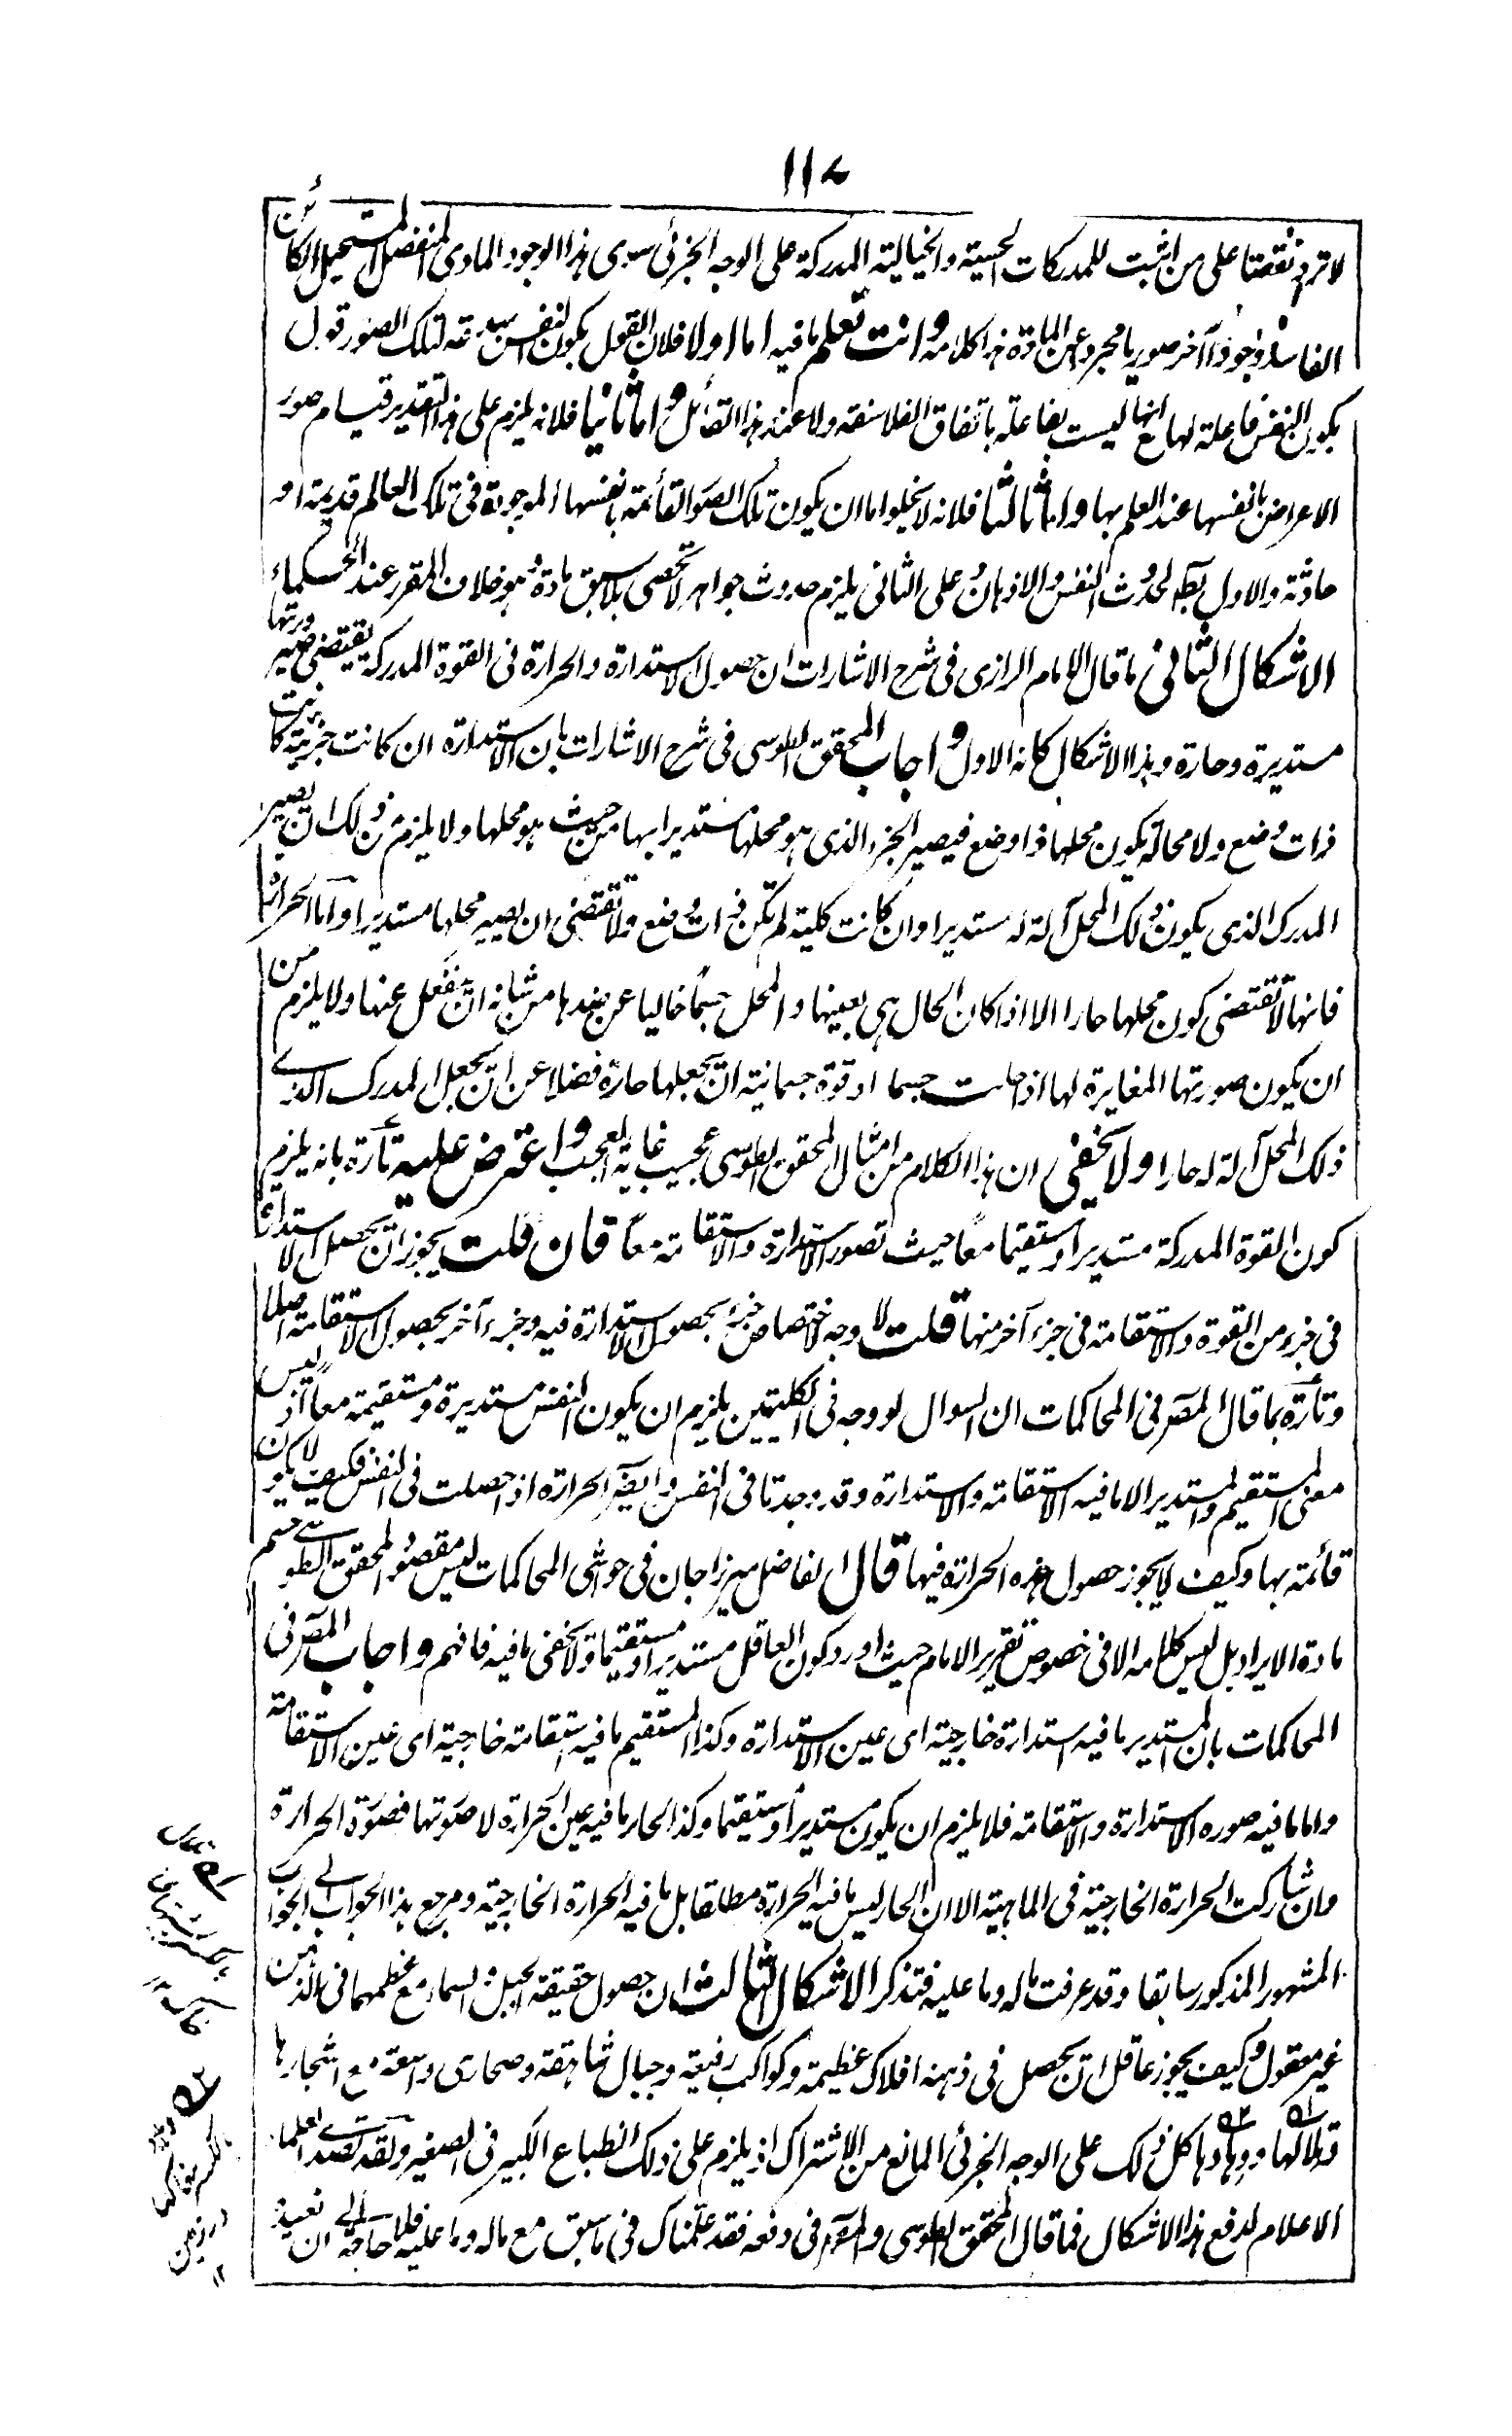 ١١٧
لا ترد نقضا على من اثبت للمدركات الحسية والخيالية المدركة على الوجه الجزئى سوى هذا الوجود المادى المنفصل المستحيل الكائن
الفاسد وجودا آخر صوريا مجردا عن المادة هذا كلامه وانت تعلم ما فيه اما اولا فلان القول بكون النفس لتلك الصور قول
بكون النفس فاعلة لها مع انها ليست بفاعلة باتفاق الفلاسفة ولا عند هذا القائل واما ثانيا فلانه يلزم على هذا التقدير قيام صور
الاعراض بانفسها عند العلم بها واما ثالثا فلانه لا يخلوا اما ان يكون تلك الصور القائمة بانفسها الموجودة فى تلك العالم قديمة او
حادثة والاول بط لحدوث النفس والاذهان وعلى الثانى يلزم حدوث جواهر لا تحصى بلا سبق مادة وهو خلاف المقرر عند الحكماء
الاشكال الثانى ما قال الامام الرازى فى شرح الاشارات ان حصول الاستدارة والحرارة فى القوة المدركة يقتضى صيرورتها
مستديرة وحارة وهذا الاشكال كانه الاول واجاب المحقق الطوسى فى شرح الاشارات بان الاستدارة ان كانت جزئية كانت
ذات وضع ولا محالة يكون محلها ذا وضع فيصير الجزء الذى هو محلها مستديرا بها من حيث هو محلها ولا يلزم من ذلك ان يصير
المدرك الذى يكون ذلك المحل آلة له مستديرا وان كانت كلية لم تكن ذات وضع ولا تقتضى ان يصير محلها مستديرا واما الحرارة
فانها لا تقتضى كون محلها حارا الا اذا كان الحال هى بعينها والمحل جسما خاليا عن ضدها من شانه ان ينفعل عنها ولا يلزم من
ان يكون صورتها المغايرة لها اذا حلت جسما او قوة جسمانية ان تجعلها حارة فضلا عن ان تجعل المدرك الذى
ذلك المحل آلة له حارا ولا يخفى ان هذا الكلام من امثال المحقق الطوسى عجيب غاية العجب واعترض عليه تارة بانه يلزم
كون القوة المدركة مستديرا ومستقيما معا حيث تصور الاستدارة والاستقامة معا فان قلت يجوز ان يحصل الاستدارة
فى جزء من القوة والاستقامة فى جزء آخر منها قلت لا وجه لاختصاص جزء بحصول الاستدارة فيه وجزء آخر بحصول الاستقامة اصلا
وتارة بما قال المصر فى المحاكمات ان السوال لو وجه فى الكليتين يلزم ان يكون النفس مستديرة ومستقيمة معا اذ ليس
معنى المستقيم والمستدير الا ما فيه الاستقامة والاستدارة وقد وجدتا فى النفس وايضا الحرارة اذا حصلت فى النفس فكيف لا يكون
قائمة بها وكيف لا يجوز حصول هذه الحرارة فيها قال الفاضل ميرزا جان فى حواشى المحاكمات ليس مقصود المحقق الطوسى حسم
مادة الايراد بل ليس كلامه الا فى خصوص تقرير الامام حيث اورد كون العاقل مستديرا ومستقيما ولا يخفى ما فيه فافهم واجاب المصر فى
المحاكمات بان المستدير ما فيه استدارة خارجية اى عين الاستدارة وكذا المستقيم ما فيه استقامة خارجية اى عين الاستقامة
واما ما فيه صوره الاستدارة والاستقامة فلا يلزم ان يكون مستديرا ومستقيما وكذا الحار ما فيه عين الحرارة لا صورتها فصورة الحرارة
وان شاركت الحرارة الخارجية فى الماهية الا ان الحار ليس ما فيه الحرارة مطلقا بل ما فيه الحرارة الخارجية ومرجع هذا الجواب الى الجواب
المشهور المذكور سابقا وقد عرفت ماله وما عليه فتذكر الاشكال الثالث ان حصول حقيقة الجبل والسماء مع عظمهما فى الذهن
غير معقول وكيف يجوز عاقل ان يحصل فى ذهنه افلاك عظيمة وكواكب رفيعة وجبال شاهقة وصحارى واسعة مع اشجارها
وتلالها ووهادها كل ذلك على الوجه الجزئى المانع من الاشتراك اذ يلزم على ذلك انطباع الكبير فى الصغير ولقد تصدى العلماء
الاعلام لدفع هذا الاشكال فما قال المحقق الطوسى والمصر فى دفعه فقد علمناك فى ما سبق مع ماله وما عليه فلا حاجة الى ان نعيده